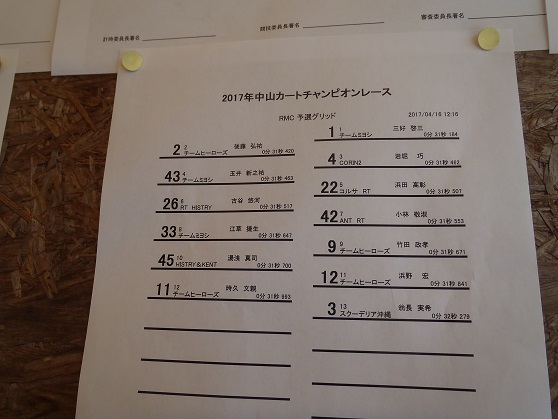 計時委員長署名
競技委員長署名
審査委員長署名
2017年中山カートチャンピオンレース
RMC 予選グリッド
2017/04/16 12:16
1 1 三好 啓三
チームミヨシ 0分 31秒 184
2 2 後藤 弘祐
チームヒーローズ 0分 31秒 420
4 3 岩堀 巧
CORIN2 0分 31秒 462
43 4 玉井 新之祐
チームミヨシ 0分 31秒 463
22 5 浜田 高彰
コルサ RT 0分 31秒 507
26 6 古谷 悠河
RT HISTRY 0分 31秒 517
42 7 小林 敬淑
ANT RT 0分 31秒 553
33 8 江草 捷生
チームミヨシ 0分 31秒 647
9 9 竹田 政孝
チームヒーローズ 0分 31秒 671
45 10 湯浅 真司
HISTRY&KENT 0分 31秒 700
12 11 浜野 宏
チームヒーローズ 0分 31秒 841
11 12 時久 文親
チームヒーローズ 0分 31秒 993
3 13 翁長 実希
スクーデリア沖縄 0分 32秒 279